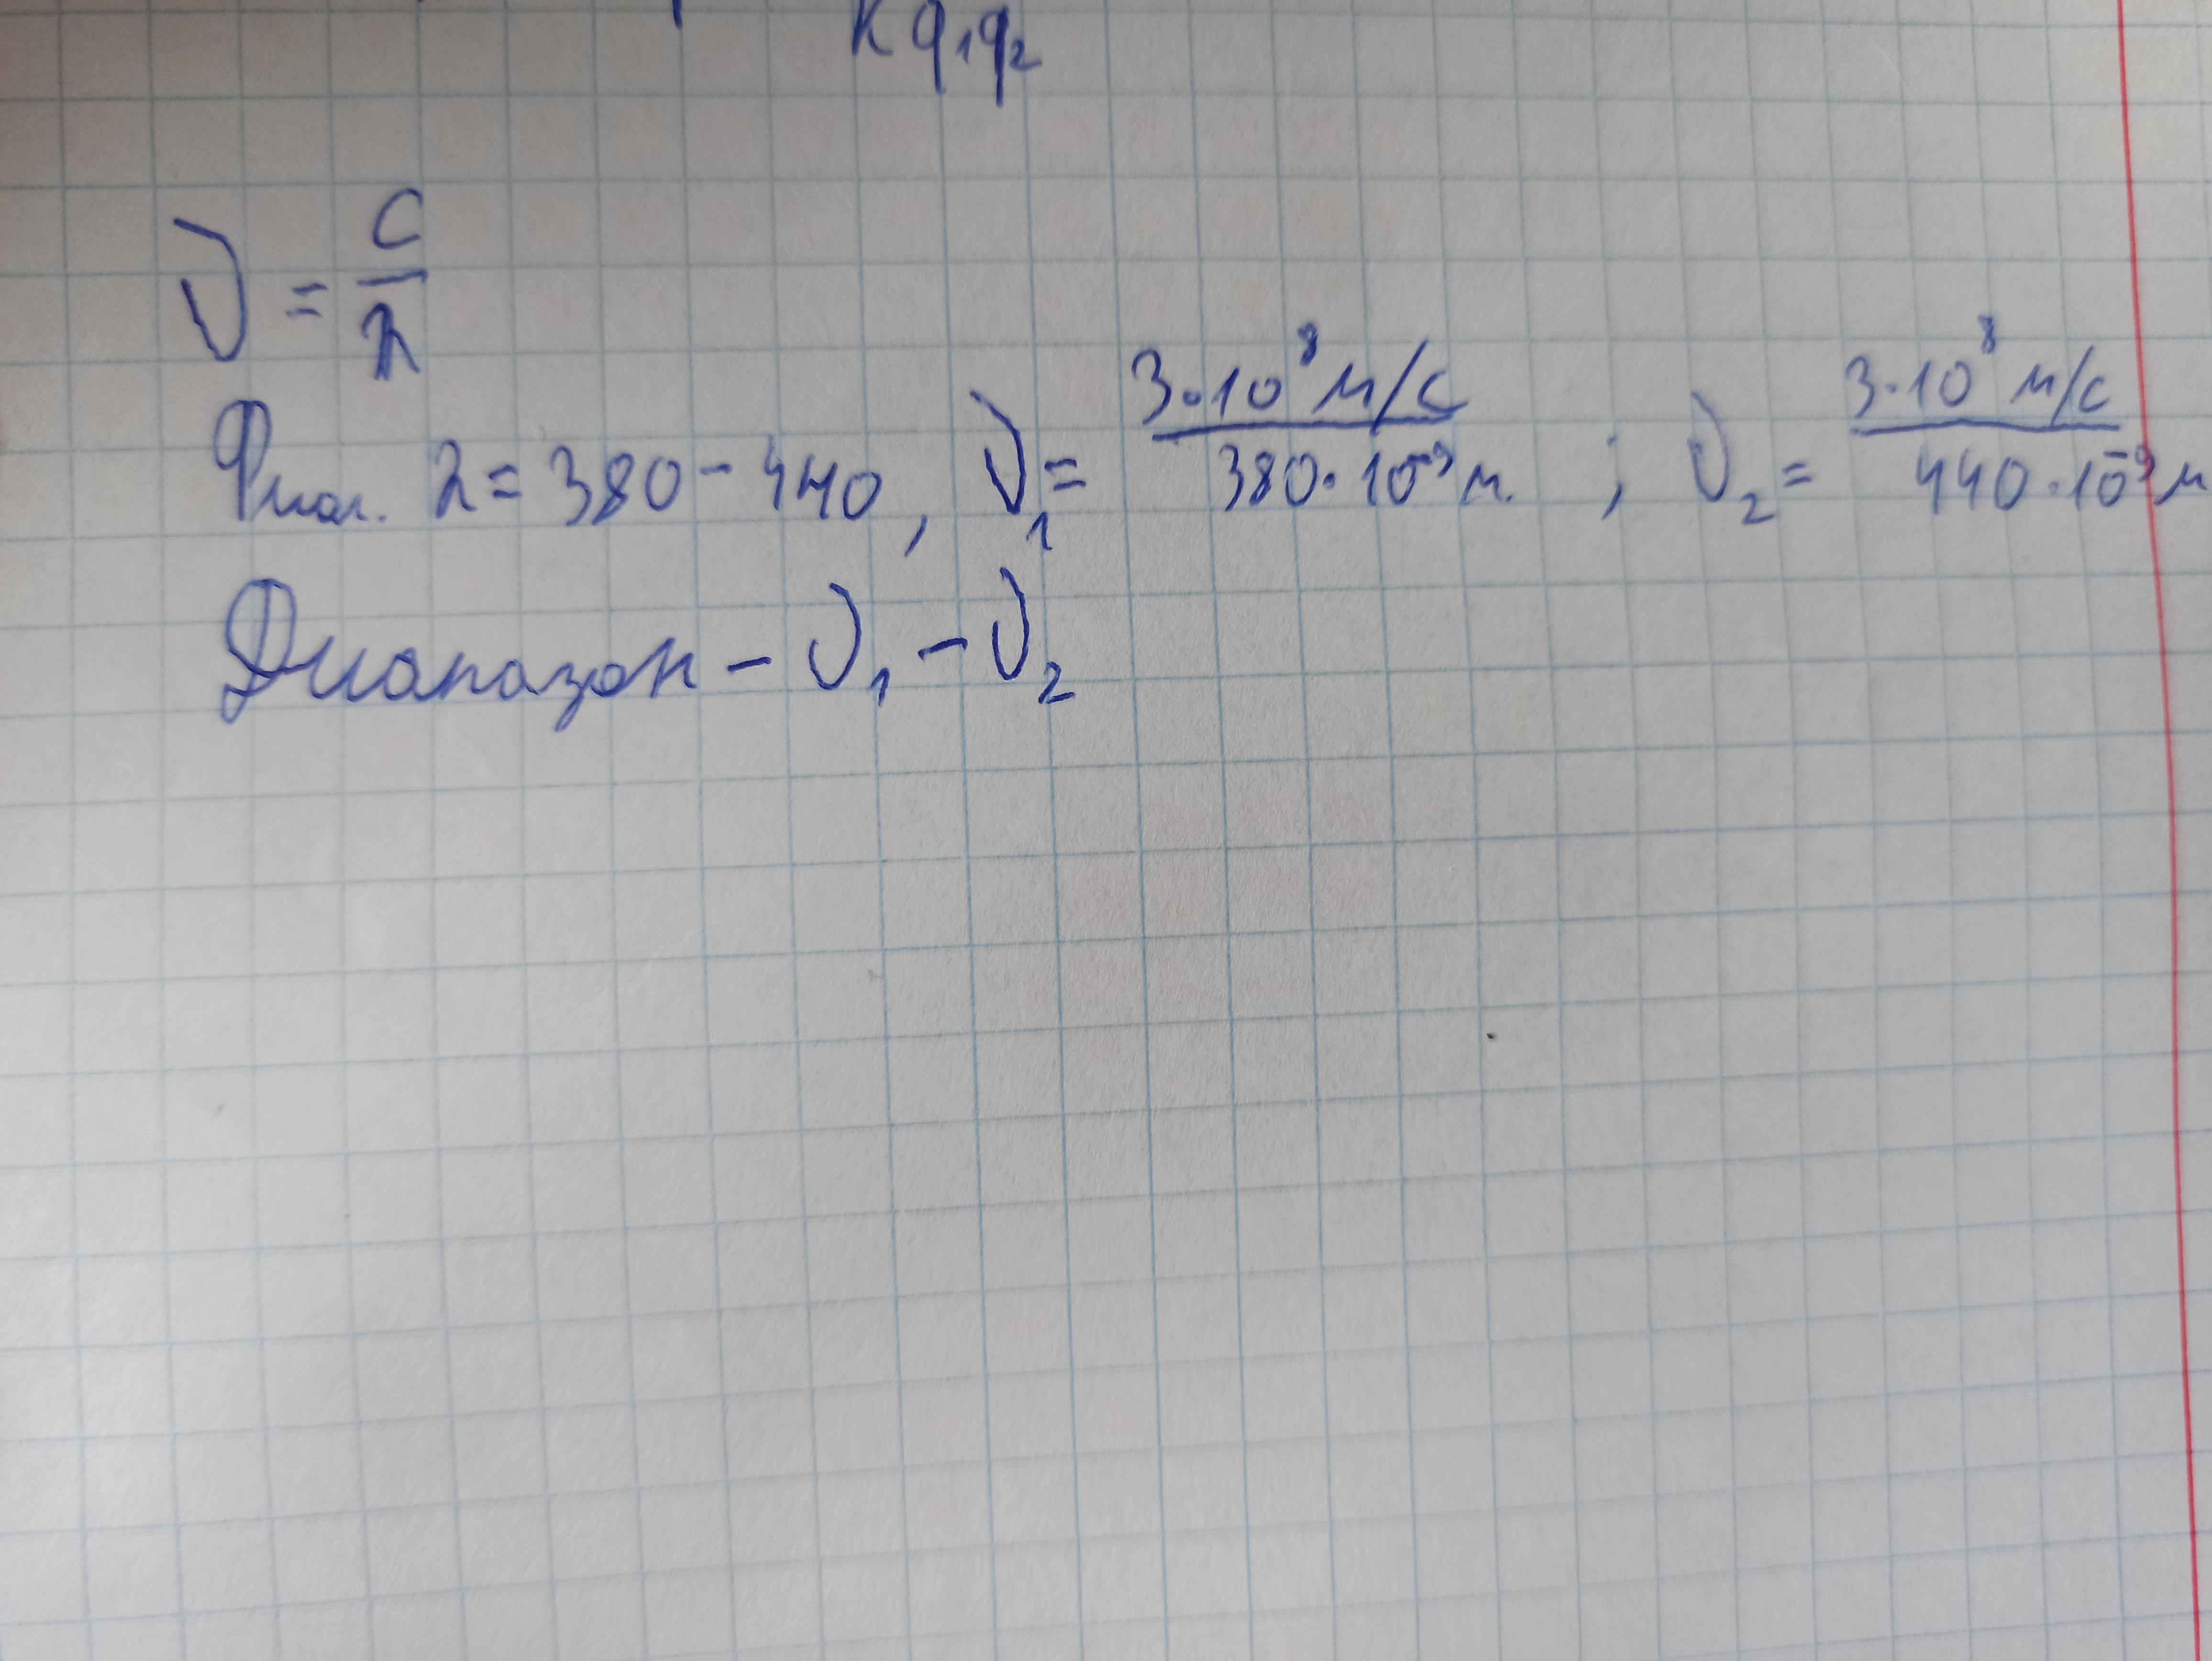 k q₁q₂
ν = c/λ
Фиол. λ = 380 - 440, ν₁ = 3·10⁸ м/с / 380·10⁻⁹ м. ; ν₂ = 3·10⁸ м/с / 440·10⁻⁹ м
Диапазон - ν₁ - ν₂